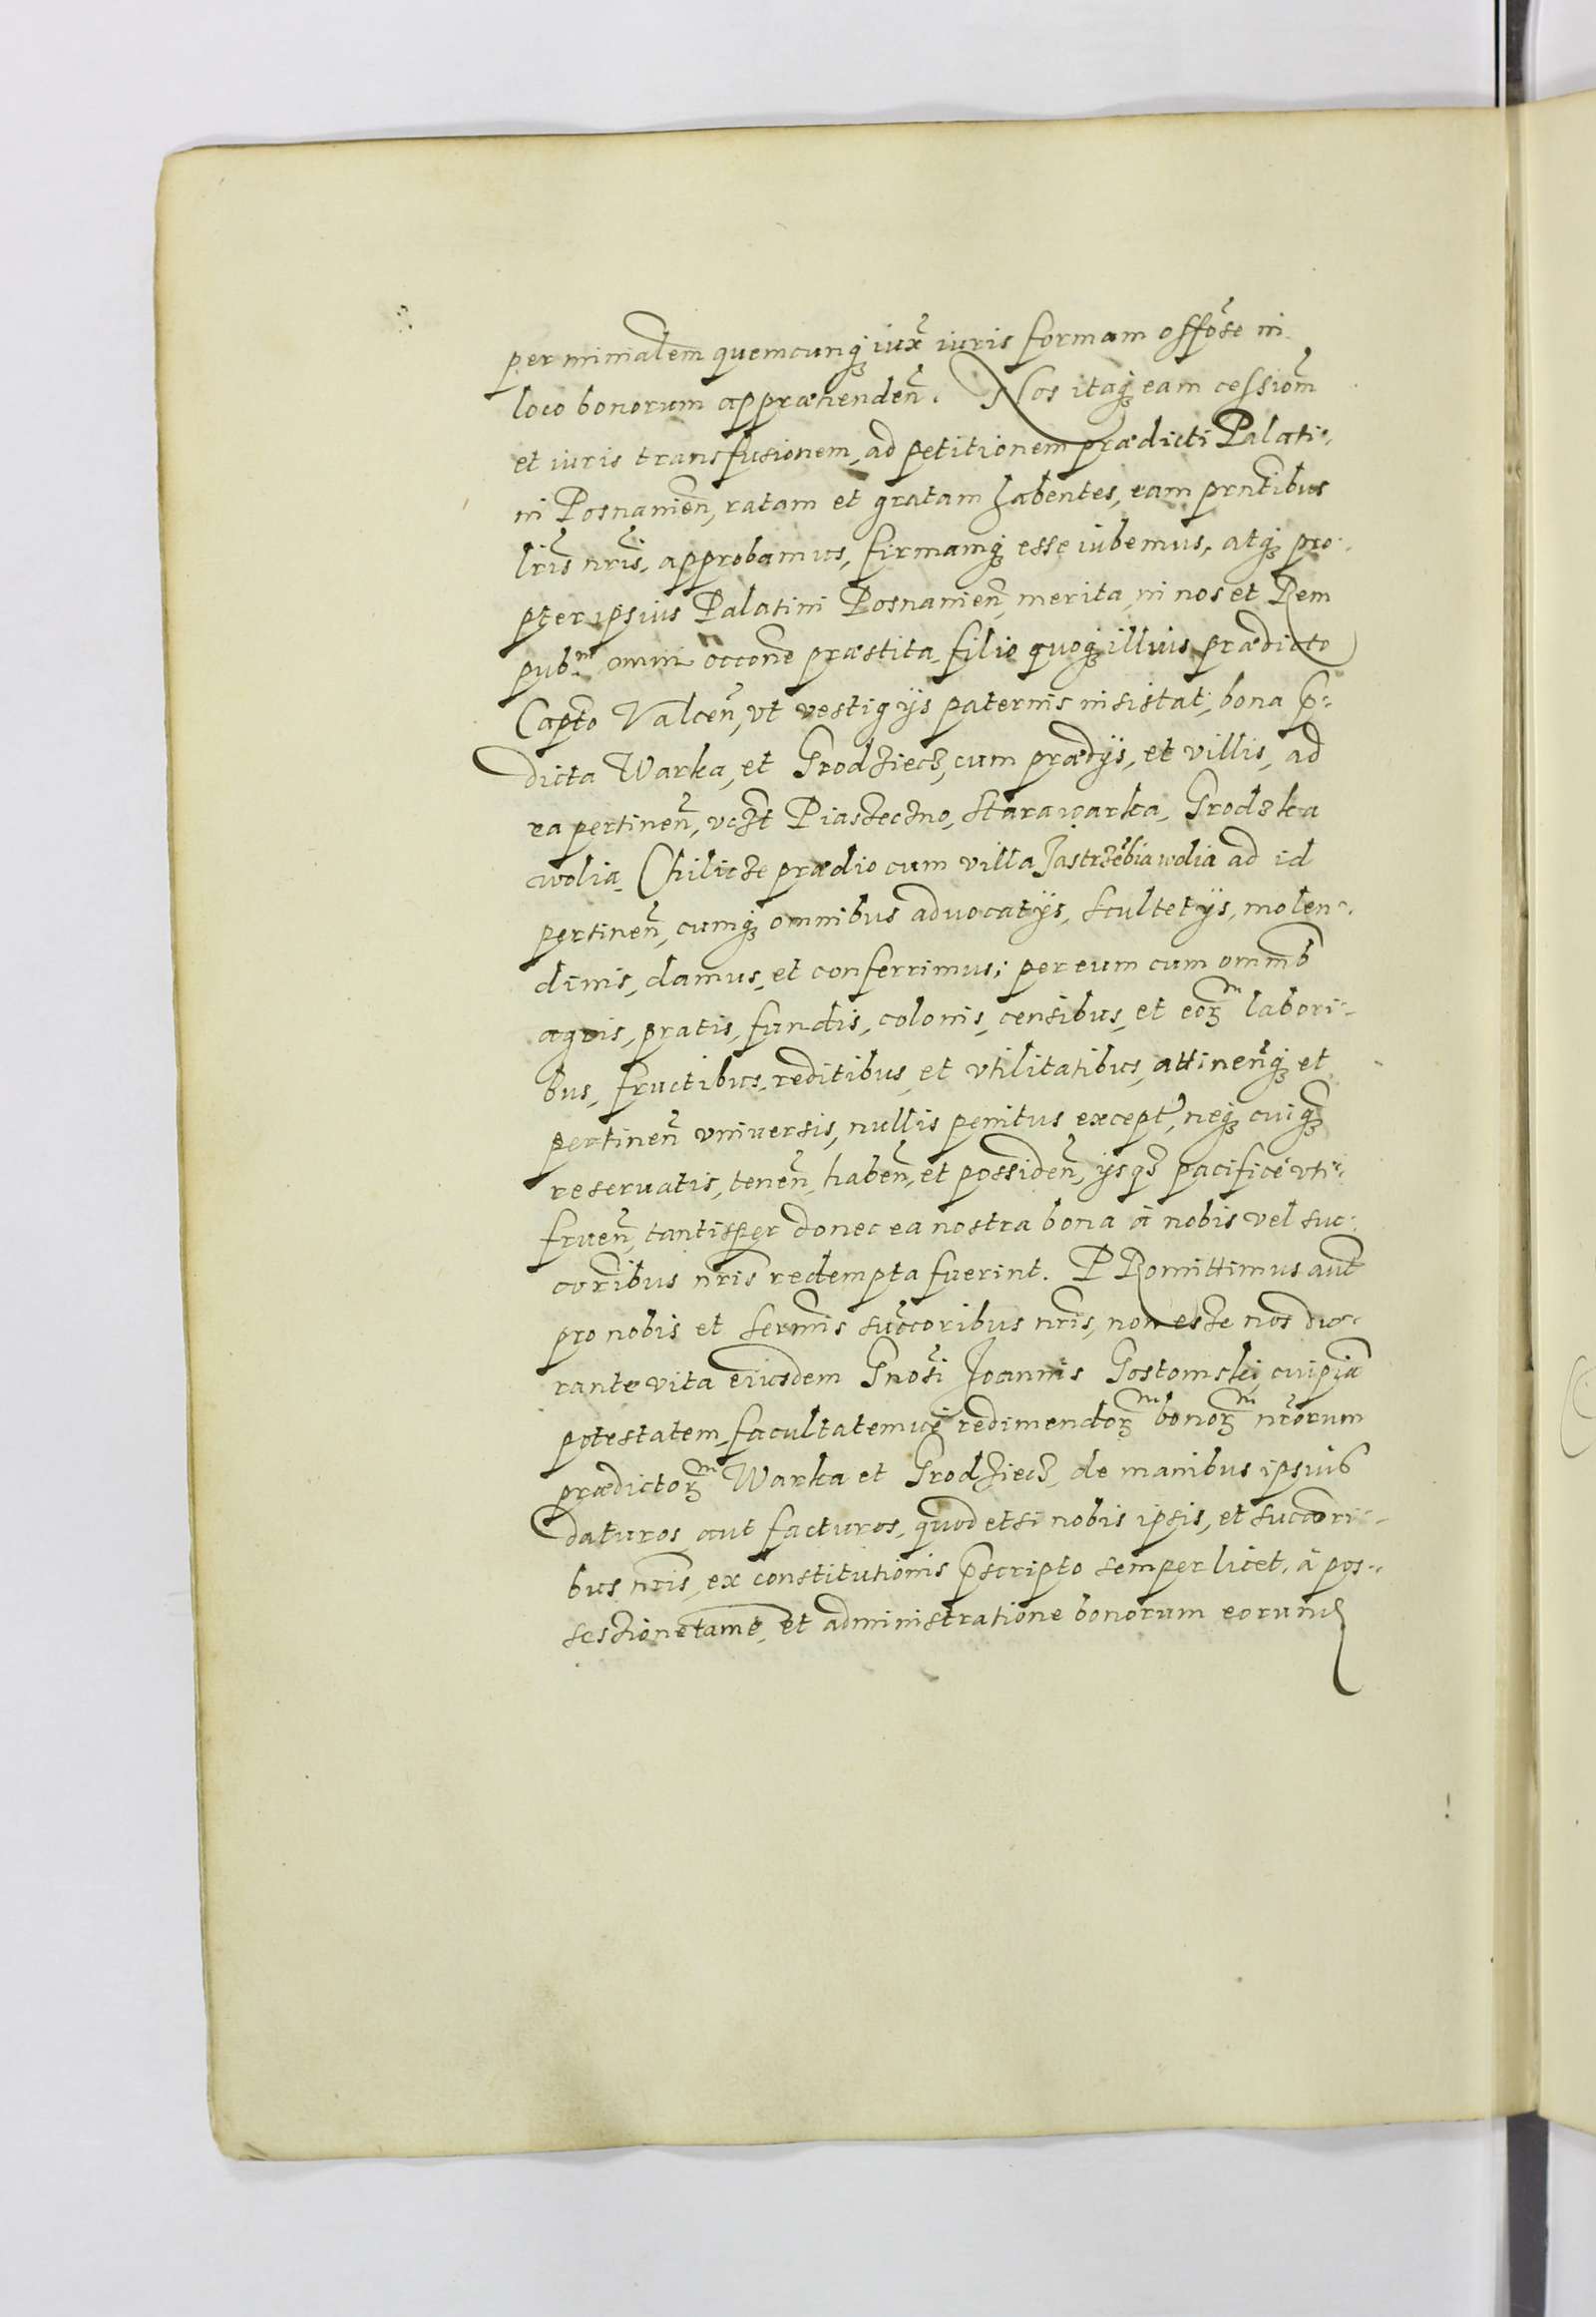 per ministerialem quemcunq₃ iux̃ iuris formam offose in
loco bonorum apprӕhenden̄. Nos itaq₃ eam cessiom̃
et iuris transfusionem, ad petitionem prӕdicti Palati-
ni Posnanien̄, ratam et gratam habentes, eam prntibus
lris nris, approbamus, firmamq₃ esse iubemus, atq₃ pro-
pter ipsius Palatini Posnanien̄, merita, in nos et Rem
pub.m omni occone prӕstita, filio quoq₃ illius prӕdicto
Capto Valcen̄, vt vestigijs paternis insistat, bona p̄-
dicta Warka, et Grodziecz, cum prӕdijs, et villis, ad
ea pertinen̄, vczt Piaszeczno, Starawarka, Grodzka
wolia, Chilicze prӕdio cum villa Jastrzėbia wolia ad id
pertinen̄, cumq₃ omnibus advocatijs, scultetijs, molen-
dinis, damus, et conferrimus; per eum cum omnib
agris, pratis, fundis, colonis, censibus, et eoꝝm labori-
bus, fructibus, reditibus, et vtilitatibus, attinen̄q₃ et
pertinen̄ vniversis, nullis penitus except, neq₃ cuiq₃
reservatis, tenen̄, haben̄, et possiden̄, ijsq₃ pacificè vti-
fruen̄, tantisper donec ea nostra bona à nobis vel suc-
coribus nris redempta fuerint. PRomittimus aut̃
pro nobis et Sermis succoribus nris, non esse nos du-
rante vita eiusdem Gnosi Joannis Gostomski, cuipiā
potestatem, facultatemvė redimendoꝝm bonoꝝm nrorum
prӕdictoꝝm Warka et Grodziecz, de manibus ipsius
daturos aut facturos, quod etsi nobis ipsis, et succori-
bus nris, ex constitutionis p̄scripto semper licet, à pos-
sessione tamē, et administratione bonorum eorund